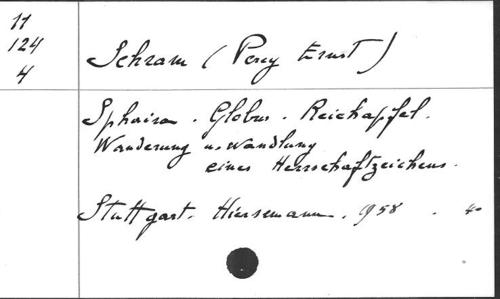 11
124
4
Schram (Percy Ernst)
Sphaira. Globus. Reichapfel.
Wanderung u. Wandlung
eines Herrschaftzeichens.
Stuttgart. Hiersemann. 1958. 4°